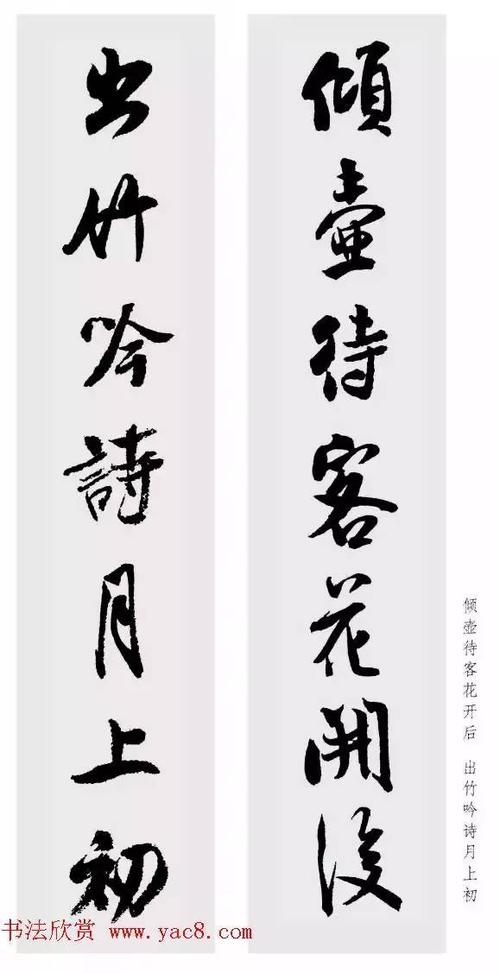 傾壺待客花開後
出竹吟詩月上初
倾壶待客花开后 出竹吟诗月上初
书法欣赏 www.yac8.com